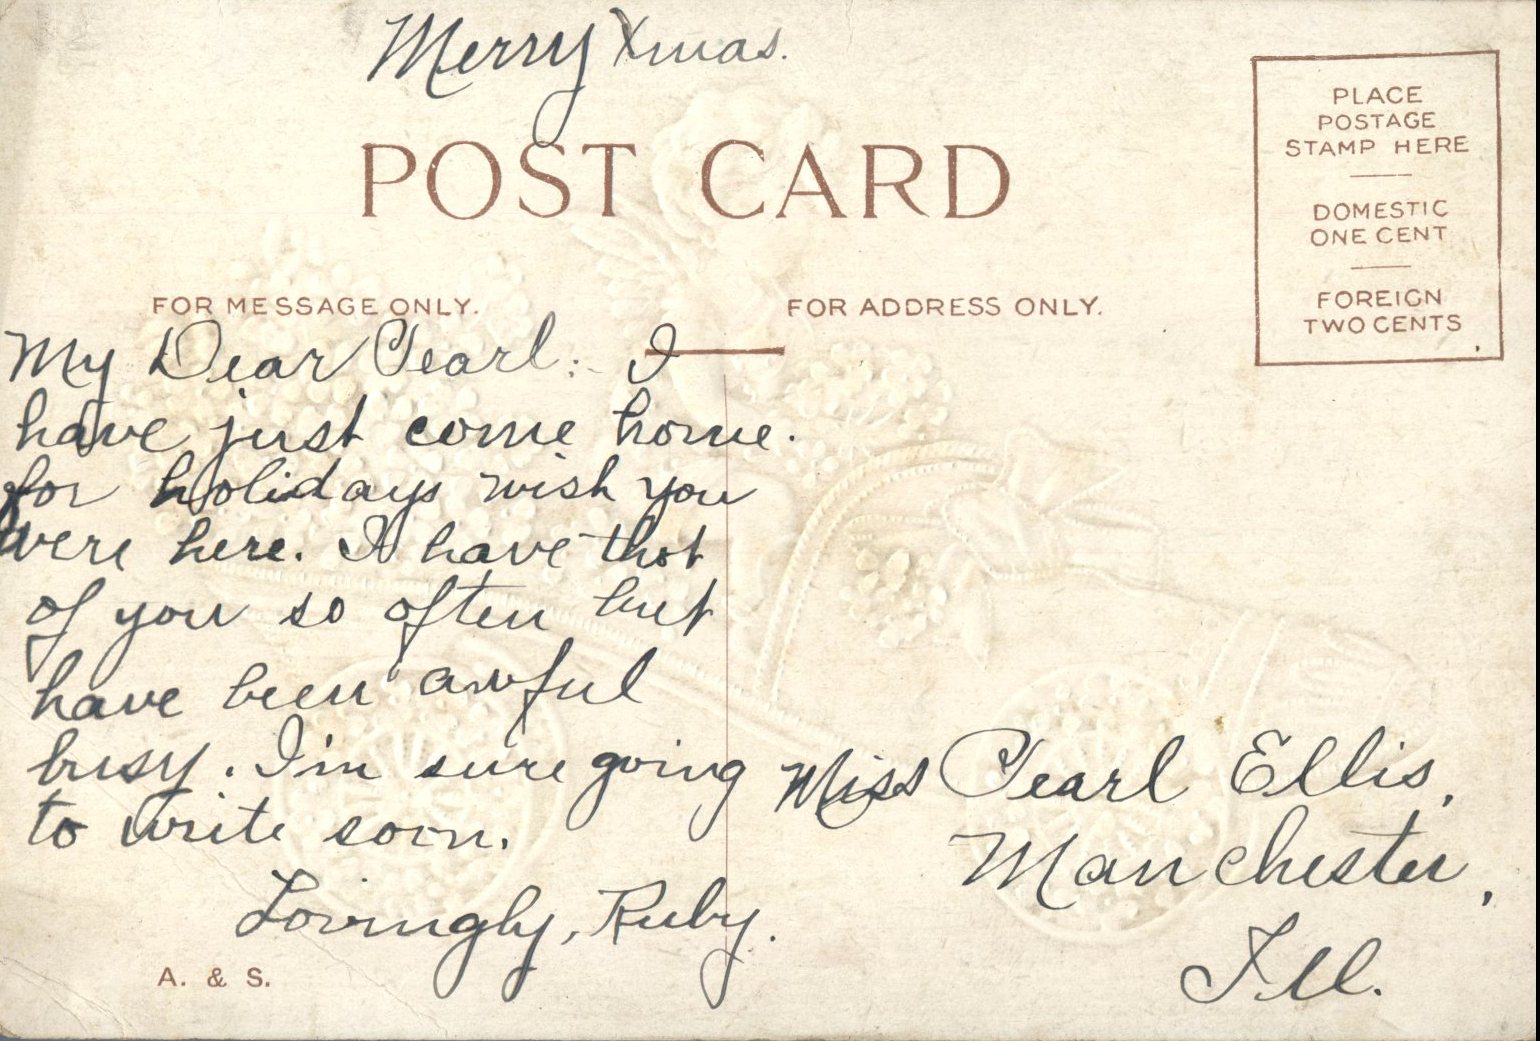 Merry Xmas.
POST CARD
PLACE
POSTAGE
STAMP HERE
DOMESTIC
ONE CENT
FOREIGN
TWO CENTS
FOR MESSAGE ONLY.
My Dear Pearl:- I
have just come home.
for holidays wish you
were here. I have thot
of you so often but
have been awful
busy. I'm sure going
to write soon.
Lovingly, Ruby.
A. & S.
FOR ADDRESS ONLY.
Miss Pearl Ellis,
Manchester,
Ill.